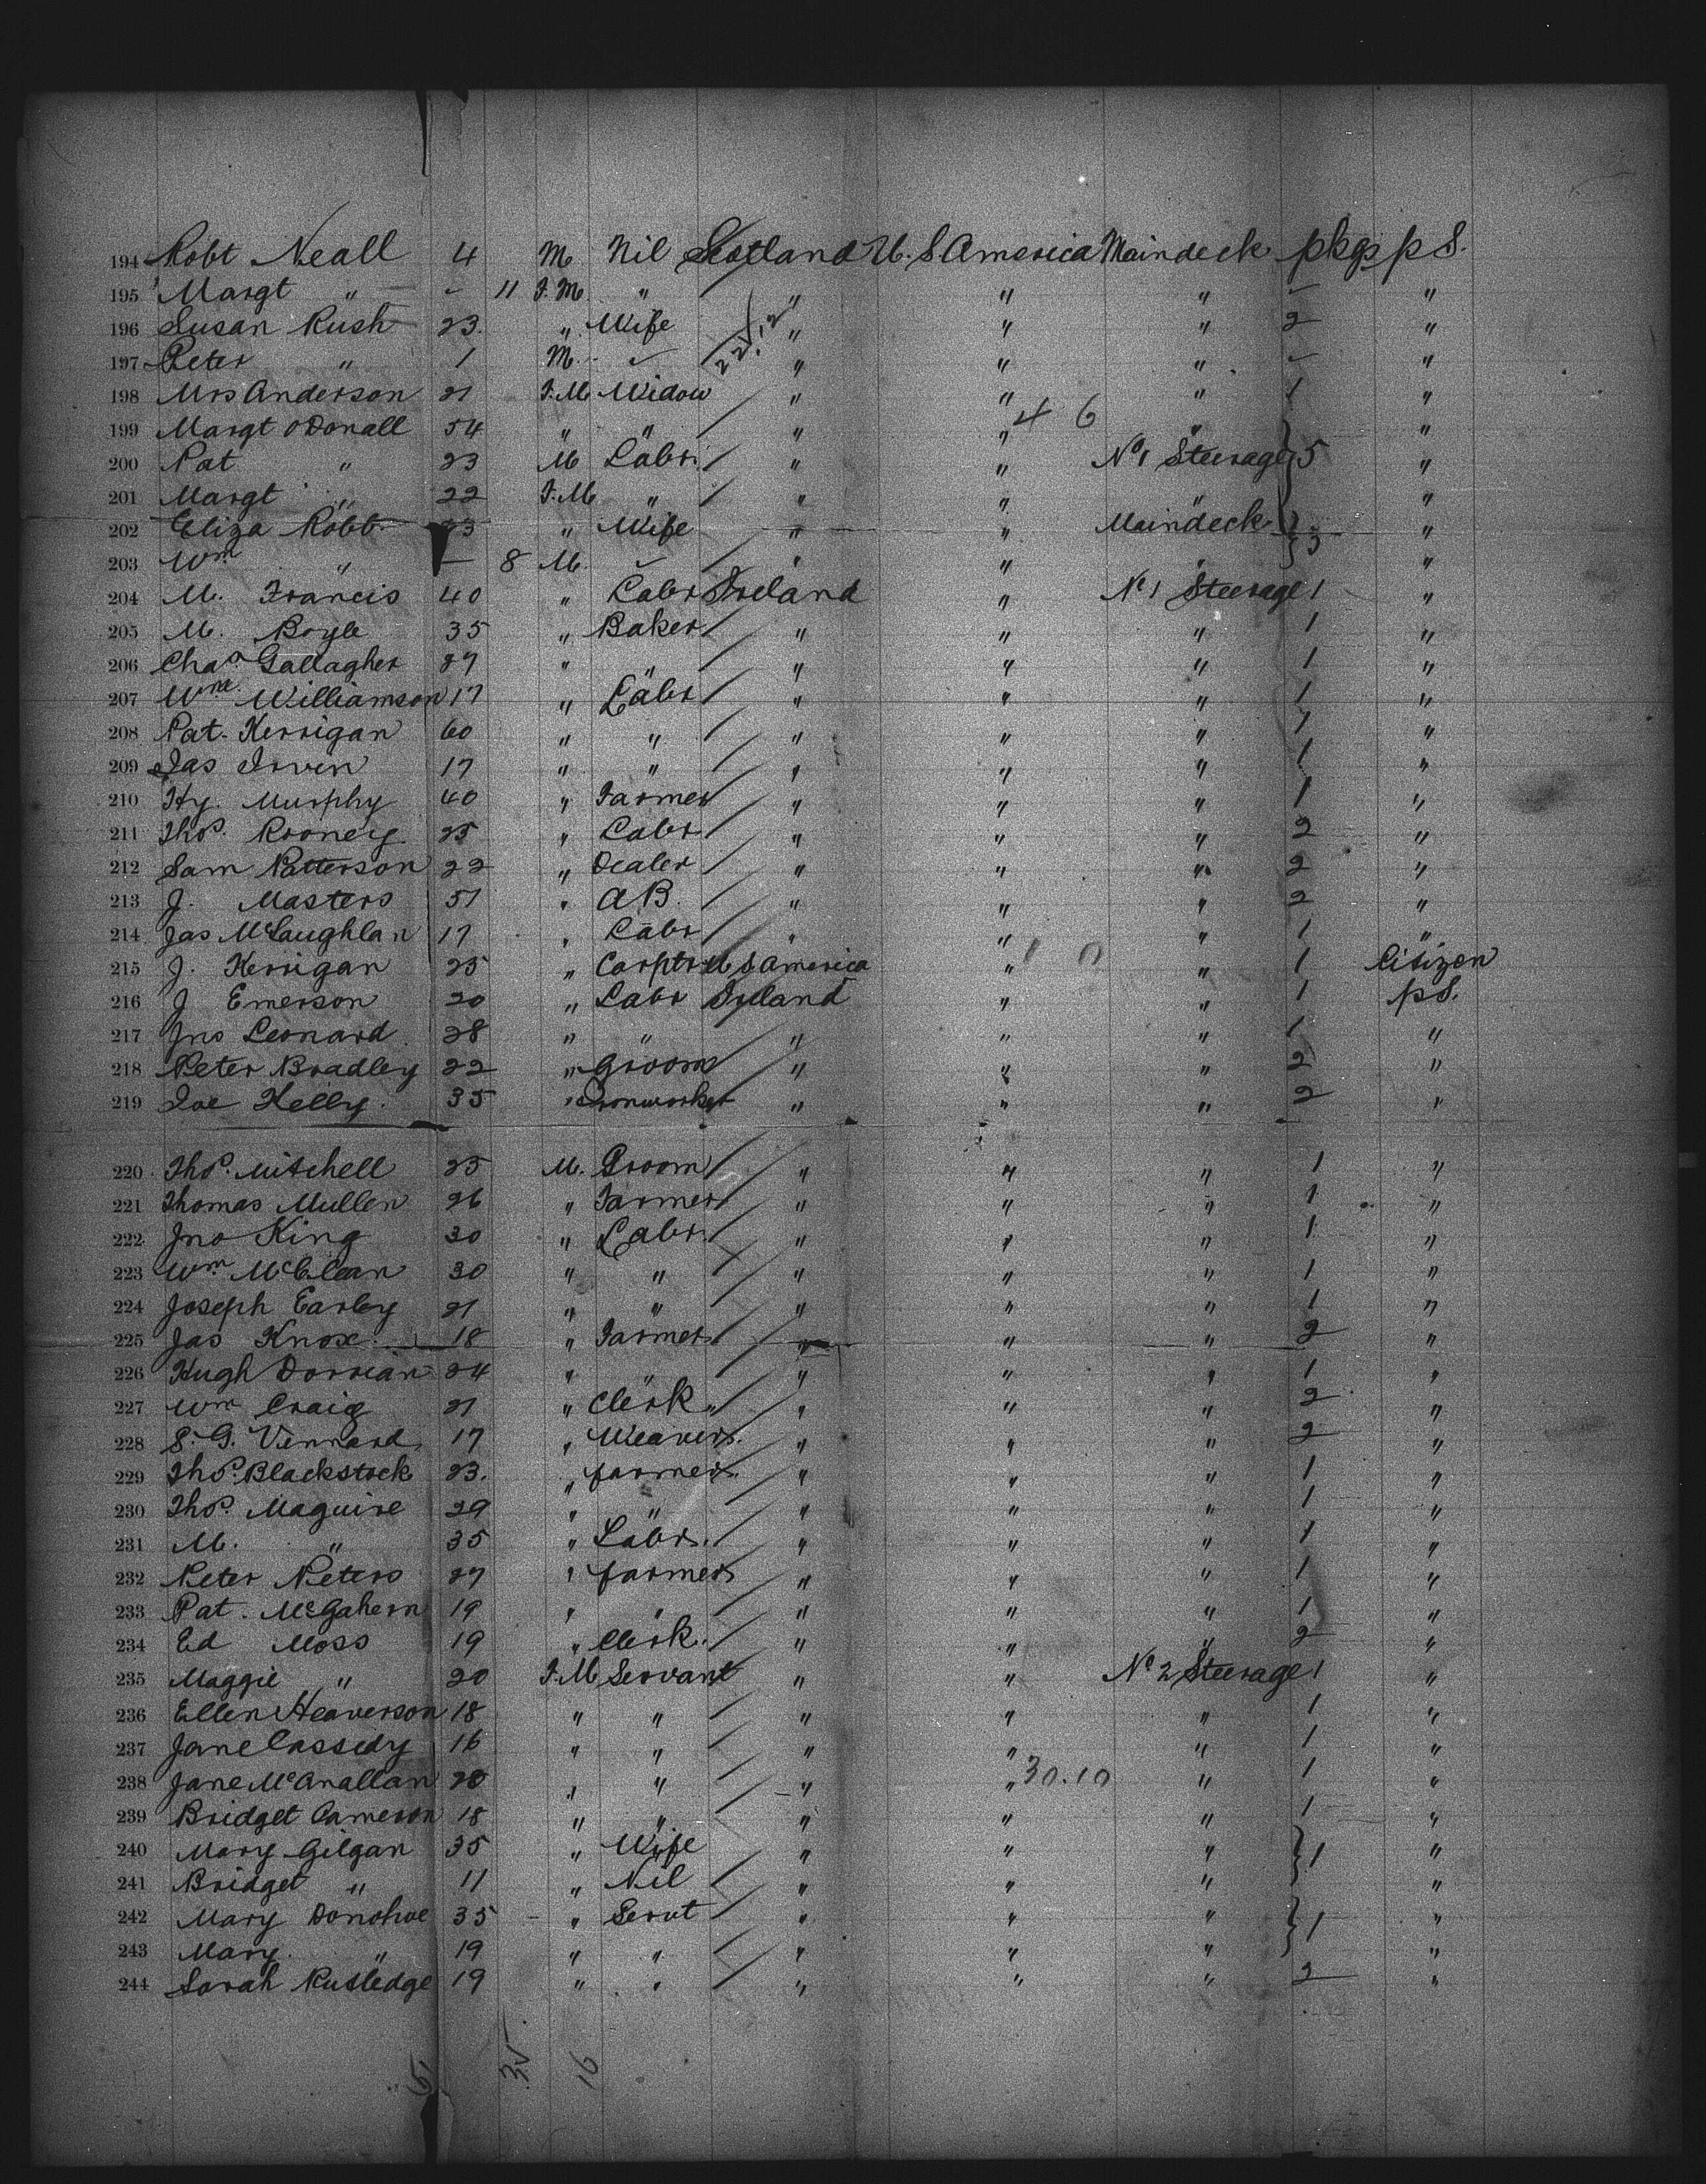 194 Robt Neall 4 M Nil Scotland U.S. America Maindeck pkgs p S.
195 Margt " - 11 F.M. " " " " - "
196 Susan Rush 23. " Wife " " " 2 "
197 Peter " 1 M. - " " " - "
198 Mrs Anderson 21 F.M Widow " " " 1 "
199 Margt oDonall 54 " " " " " "
200 Pat " 23 M Labr. " " No 1 Steerage } 5 "
201 Margt " 22 F.M " " " " "
202 Eliza Robb 23 " Wife " " Maindeck } 3 "
203 Wm " - 8 M. - " " " "
204 M. Francis 40 " Labr Ireland " No 1 Steerage 1 "
205 M. Boyle 35 " Baker " " " 1 "
206 Chas Gallagher 27 " " " " " 1 "
207 Wm Williamson 17 " Labr " " " 1 "
208 Pat. Kerrigan 60 " " " " " 1 "
209 Jas Irvin 17 " " " " " 1 "
210 Hy. Murphy 40 " Farmer " " " 1 "
211 Thos. Rooney 25 " Labr " " " 2 "
212 Sam Patterson 22 " Dealer " " " 2 "
213 J. Masters 51 " AB. " " " 2 "
214 Jas McLaughlan 17 " Labr " " " 1 "
215 J. Kerrigan 25 " Carptr U S America " " 1 Citizen
216 J Emerson 20 " Labr Ireland " " 1 p S.
217 Jno Leonard 28 " " " " " 1 "
218 Peter Bradley 22 " Groom " " " 2 "
219 Joe Kelly. 35 " Ironworker " " " 2 "
220 Thos. Mitchell 25 M. Groom " " " 1 "
221 Thomas Mullen 26 " Farmer " " " 1 "
222 Jno King 30 " Labr. " " " 1 "
223 Wm McClean 30 " " " " " 1 "
224 Joseph Earley 21 " " " " " 1 "
225 Jas Knox. 18 " Farmer " " " 2 "
226 Hugh Dorrian 24 " " " " " 1 "
227 Wm Craig 21 " Clerk " " " 2 "
228 S. G. Vennard 17 " Weaver. " " " 2 "
229 Thos. Blackstock 23. " farmer. " " " 1 "
230 Thos. Maguire 29 " " " " " 1 "
231 M. " 35 " Labr. " " " 1 "
232 Peter Peters 27 " farmer " " " 1 "
233 Pat. McGahern 19 " " " " " 1 "
234 Ed Moss 19 " Clerk. " " " 2 "
235 Maggie " 20 F.M Servant " " No 2 Steerage 1 "
236 Ellen Heaverson 18 " " " " " 1 "
237 Jane Cassidy 16 " " " " " 1 "
238 Jane McAnallan 20 " " " " 30.10 " 1 "
239 Bridget Cameron 18 " " " " " 1 "
240 Mary Gilgan 35 " Wife " " " } 1 "
241 Bridget " 11 " Nil " " " "
242 Mary Donohoe 35 - " Servt " " " } 1 "
243 Mary. " 19 " " " " " "
244 Sarah Rutledge 19 " " " " " 2 "
35. 16